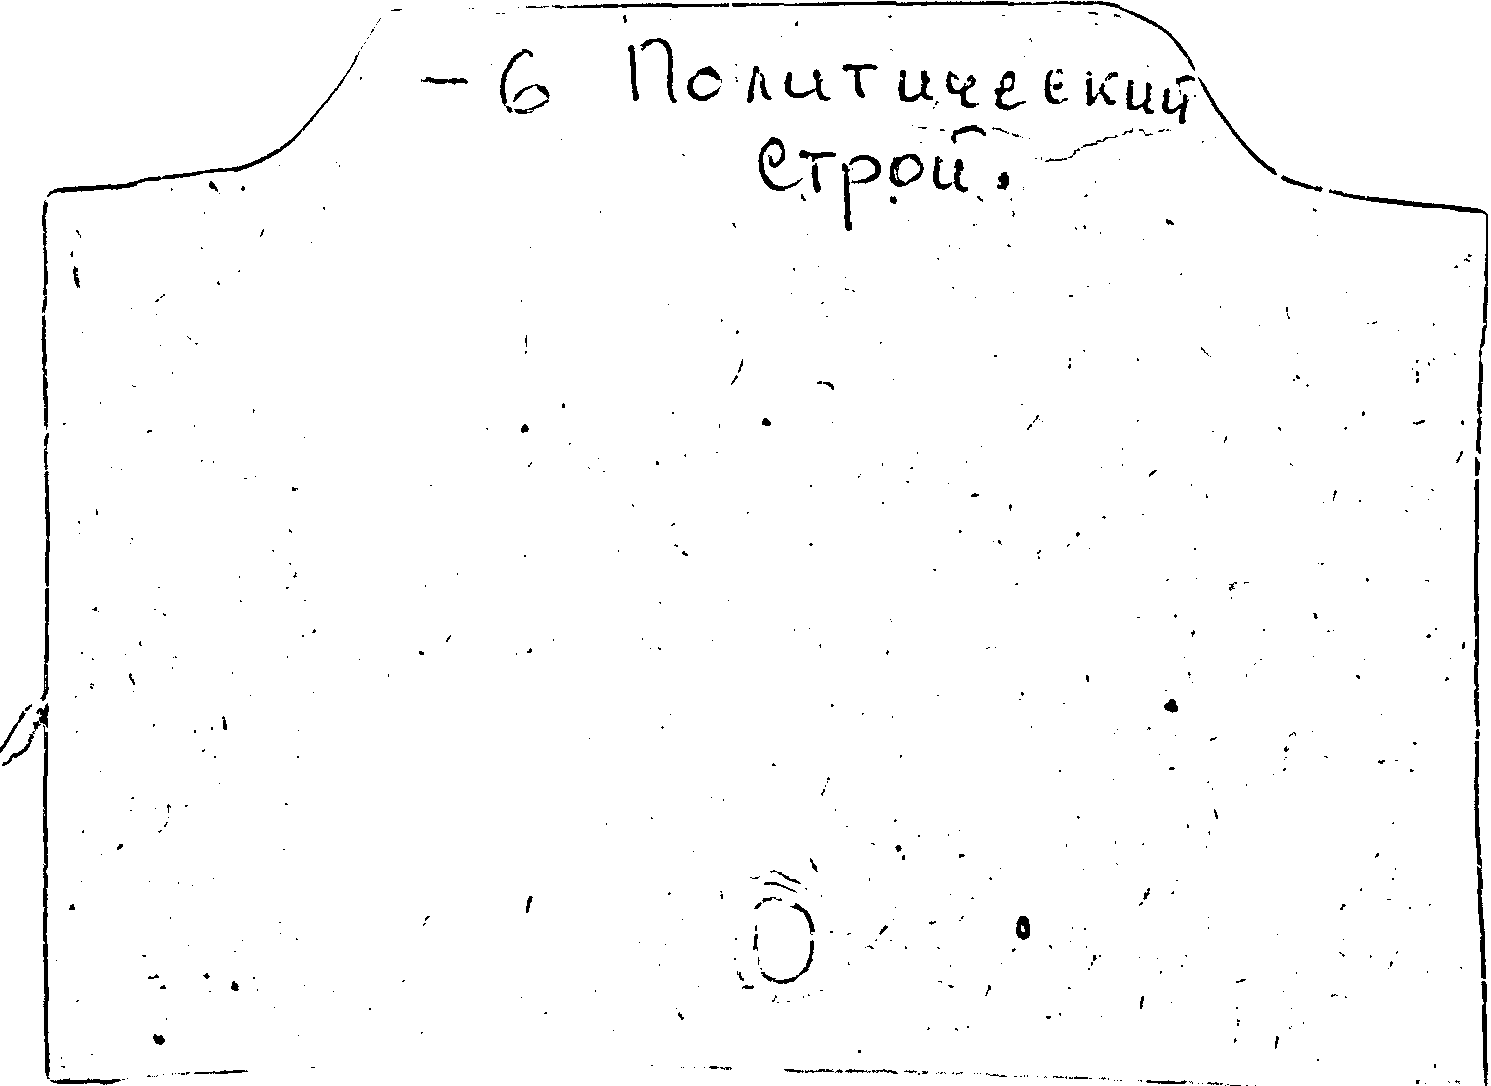 - 6 Политический
строй.